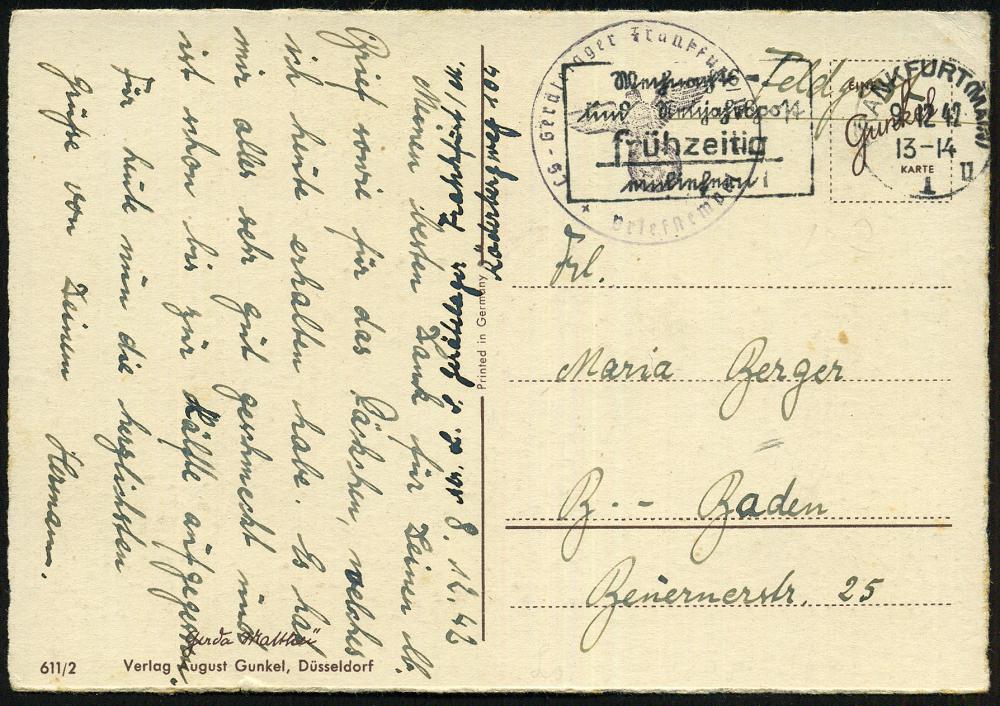 Abs. L. S. Gerätelager Frankfurt/M.
Röderbergweg 104
8. 12. 42
Meinen besten Dank für Deinen lb.
Brief sowie für das Päckchen, welches
ich heute erhalten habe. Es hat
mir alles sehr gut geschmeckt und
ist schon bis zur Hälfte aufgegessen.
Für heute nun die herzlichsten
Grüße von Deinem Hermann.
Gerda Matthéi
611/2 Verlag August Gunkel, Düsseldorf
Printed in Germany
LS-Gerätelager Frankfurt
Briefstempel
Weihnachts-
und Neujahrspost
frühzeitig
einliefern!
Feldpost
Gunkel
FRANKFURT (MAIN)
8.12.42
13-14
KARTE
1
u
Frl.
Maria Berger
B.-Baden
Beuernerstr. 25